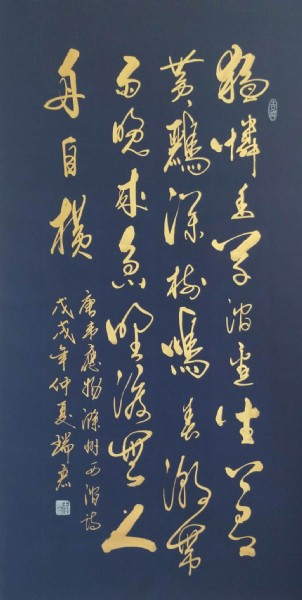 獨憐幽草澗邊生上有
黄鸝深樹鳴春潮帶
雨晚來急野渡無人
舟自横
唐韋應物滁州西澗詩
戊戌年仲夏瑞